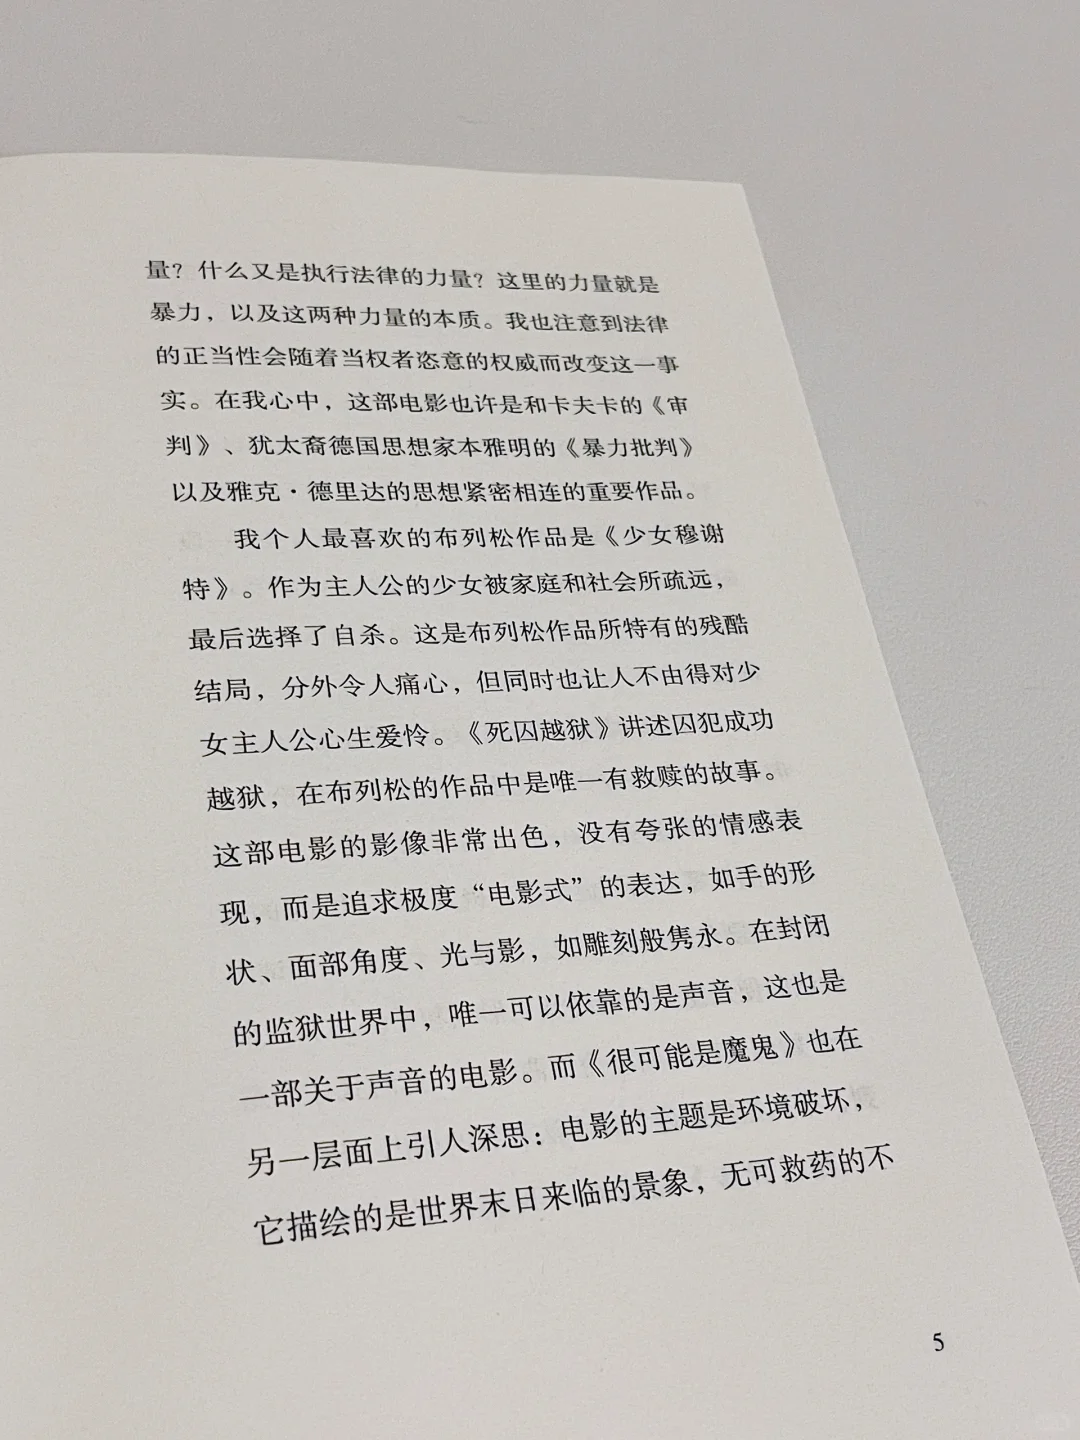 量？什么又是执行法律的力量？这里的力量就是
暴力，以及这两种力量的本质。我也注意到法律
的正当性会随着当权者恣意的权威而改变这一事
实。在我心中，这部电影也许是和卡夫卡的《审
判》、犹太裔德国思想家本雅明的《暴力批判》
以及雅克·德里达的思想紧密相连的重要作品。
我个人最喜欢的布列松作品是《少女穆谢
特》。作为主人公的少女被家庭和社会所疏远，
最后选择了自杀。这是布列松作品所特有的残酷
结局，分外令人痛心，但同时也让人不由得对少
女主人公心生爱怜。《死囚越狱》讲述囚犯成功
越狱，在布列松的作品中是唯一有救赎的故事。
这部电影的影像非常出色，没有夸张的情感表
现，而是追求极度“电影式”的表达，如手的形
状、面部角度、光与影，如雕刻般隽永。在封闭
的监狱世界中，唯一可以依靠的是声音，这也是
一部关于声音的电影。而《很可能是魔鬼》也在
另一层面上引人深思：电影的主题是环境破坏，
它描绘的是世界末日来临的景象，无可救药的不
5